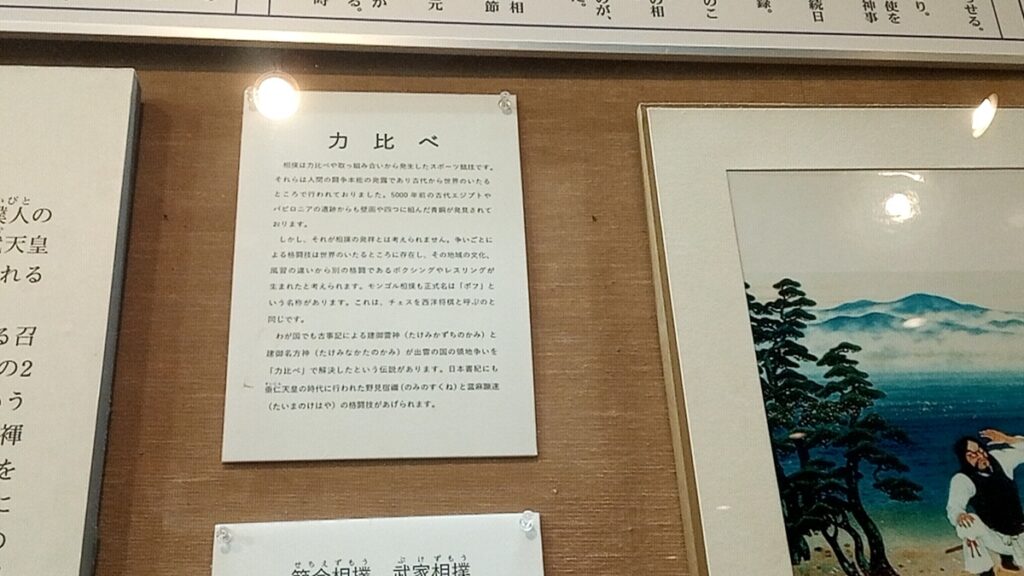 力比べ
相撲は力比べや取っ組み合いから発生したスポーツ競技です。
それらは人間の闘争本能の発露であり古代から世界のいたる
ところで行われておりました。5000年前の古代エジプトや
バビロニアの遺跡からも壁画や四つに組んだ青銅が発見されて
おります。
しかし、それが相撲の発祥とは考えられません。争いごとに
よる格闘技は世界のいたるところに存在し、その地域の文化、
風習の違いから別の格闘であるボクシングやレスリングが
生まれたと考えられます。モンゴル相撲も正式名は「ボフ」と
いう名称があります。これは、チェスを西洋将棋と呼ぶのと
同じです。
わが国でも古事記による建御雷神（たけみかずちのかみ）と
建御名方神（たけみなかたのかみ）が出雲の国の領地争いを
「力比べ」で解決したという伝説があります。日本書紀にも
垂仁天皇の時代に行われた野見宿禰（のみのすくね）と當麻蹶速
（たいまのけはや）の格闘技があげられます。
節会相撲 武家相撲
せちえずもう ぶけずもう
人の
天皇
れる
る召
の2
う
褌
を
に
の
せる。
り。
使を
神事
続日
録。
のこ
の相
のが、
た。
相
節
元
が
る。
時